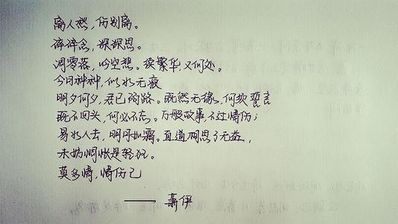 离人愁，伤别离。
碎碎念，默默思。
凋零落，吟空想。候繁华，又何处。
今日种种，似水无痕
明夕何夕，君已陌路。既然无缘，何须誓言
既不回头，何必不忘。万般故事，不过情伤；
易水人去，明月如霜。直道相思了无益，
未妨惆怅是轻狂。
莫多情，情伤己